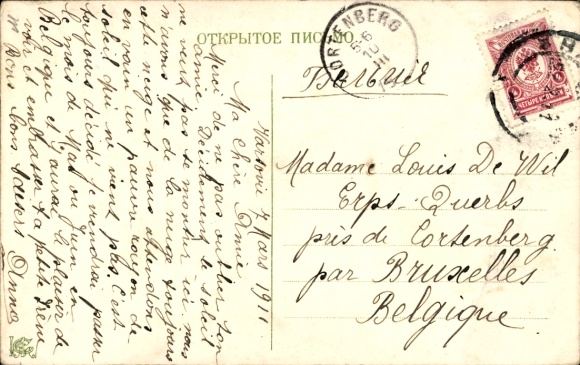 ОТКРЫТОЕ ПИСЬМО.
CORTENBERG
Бельгия
ЧЕТЫРЕ КОП.
Varsovie 7 Mars 1911
Ma chère Amie
Merci de ne pas oublier ton
amie. Décidement le soleil
ne veut pas se montrer ici nous
n'avons que de la neige toujours
cette neige et nous attendons
en vain un pauvre rayon de
soleil qui ne vient pas. C'est
toujours décidé je viendrai passer
le mois de Mai ou Juin en
Belgique et j'aurai le plaisir de
voir et embrasser ta petite
Bons baisers Anna
Madame Louis De Wil
Erps-Querbs
près de Cortenberg
par Bruxelles
Belgique